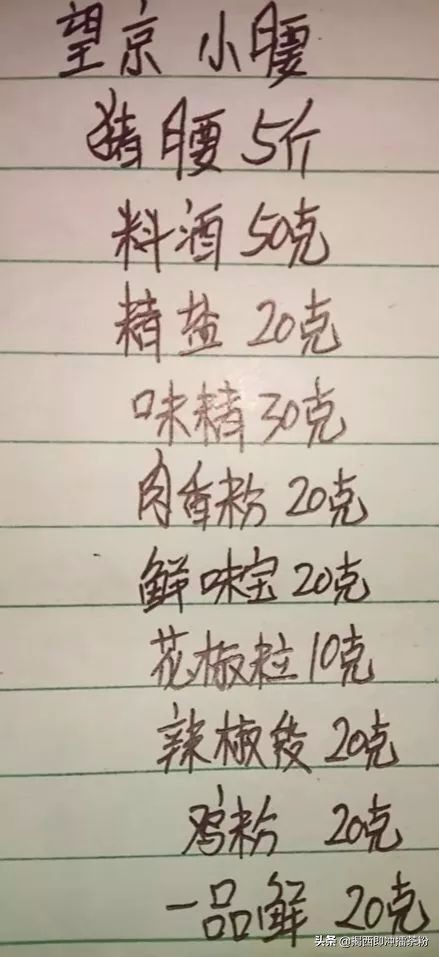 望京小腰
猪腰5斤
料酒50克
精盐20克
味精30克
肉香粉20克
鲜味宝20克
花椒粒10克
辣椒段20克
鸡粉 20克
一品鲜 20克
头条@揭西即冲擂茶粉